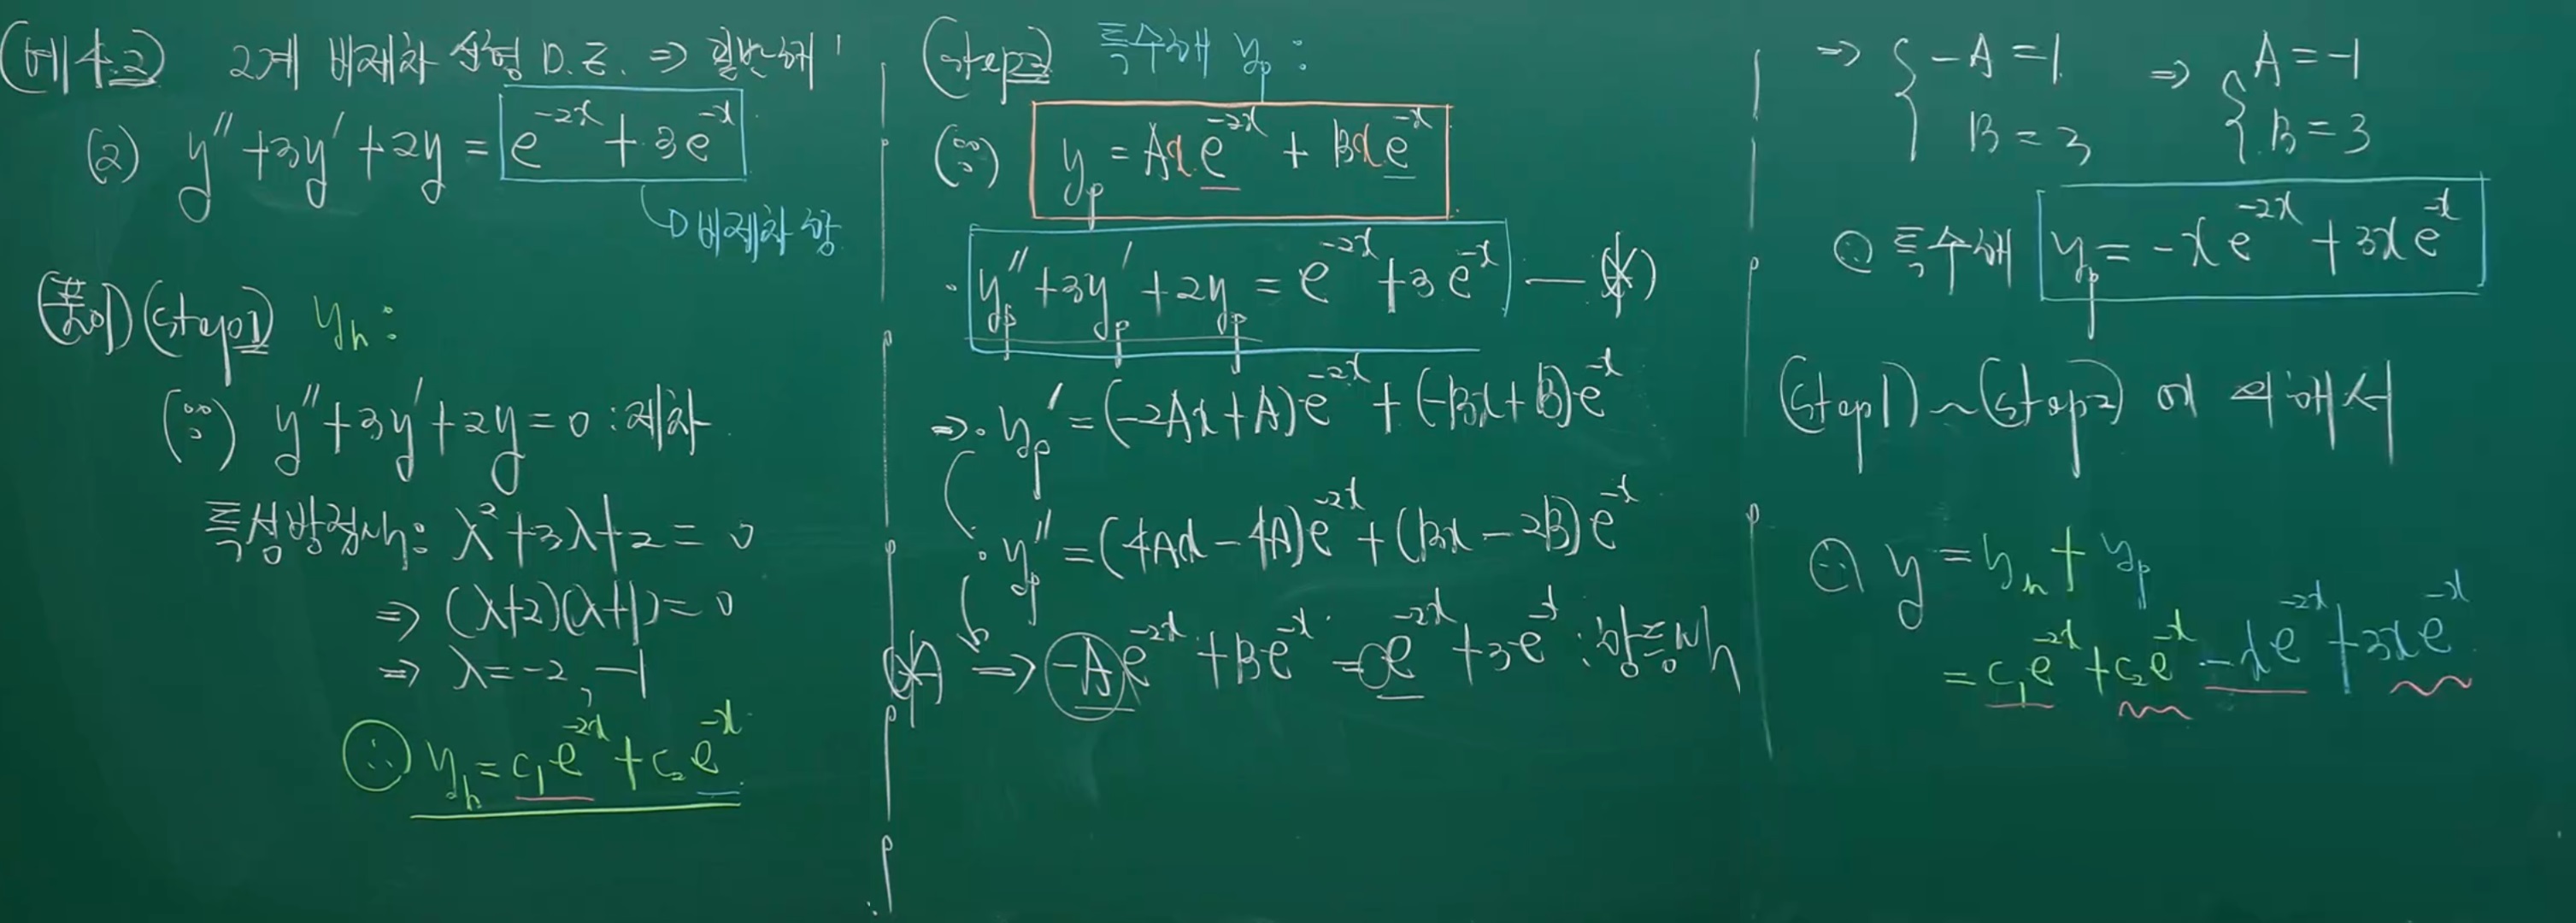 (예4.2) 2계 비제차 선형 D.E. ⇒ 일반해!
(2) y'' + 3y' + 2y = e^{-2x} + 3e^{-x}
비제차항
(풀이) (step1) y_h:
(∵) y'' + 3y' + 2y = 0 : 제차
특성방정식: λ² + 3λ + 2 = 0
⇒ (λ+2)(λ+1) = 0
⇒ λ = -2, -1
∴ y_h = c₁e^{-2x} + c₂e^{-x}
(step2) 특수해 y_p:
(∵) y_p = Axe^{-2x} + Bxe^{-x}
· y_p'' + 3y_p' + 2y_p = e^{-2x} + 3e^{-x} — (*)
⇒ · y_p' = (-2Ax + A)e^{-2x} + (-Bx + B)e^{-x}
· y_p'' = (4Ax - 4A)e^{-2x} + (Bx - 2B)e^{-x}
(*) ⇒ -Ae^{-2x} + Be^{-x} = e^{-2x} + 3e^{-x} : 항등식
⇒ { -A = 1 ⇒ { A = -1
B = 3 B = 3
∴ 특수해 y_p = -xe^{-2x} + 3xe^{-x}
(step1) ~ (step2) 에 의해서
∴ y = y_h + y_p
= c₁e^{-2x} + c₂e^{-x} - xe^{-2x} + 3xe^{-x}